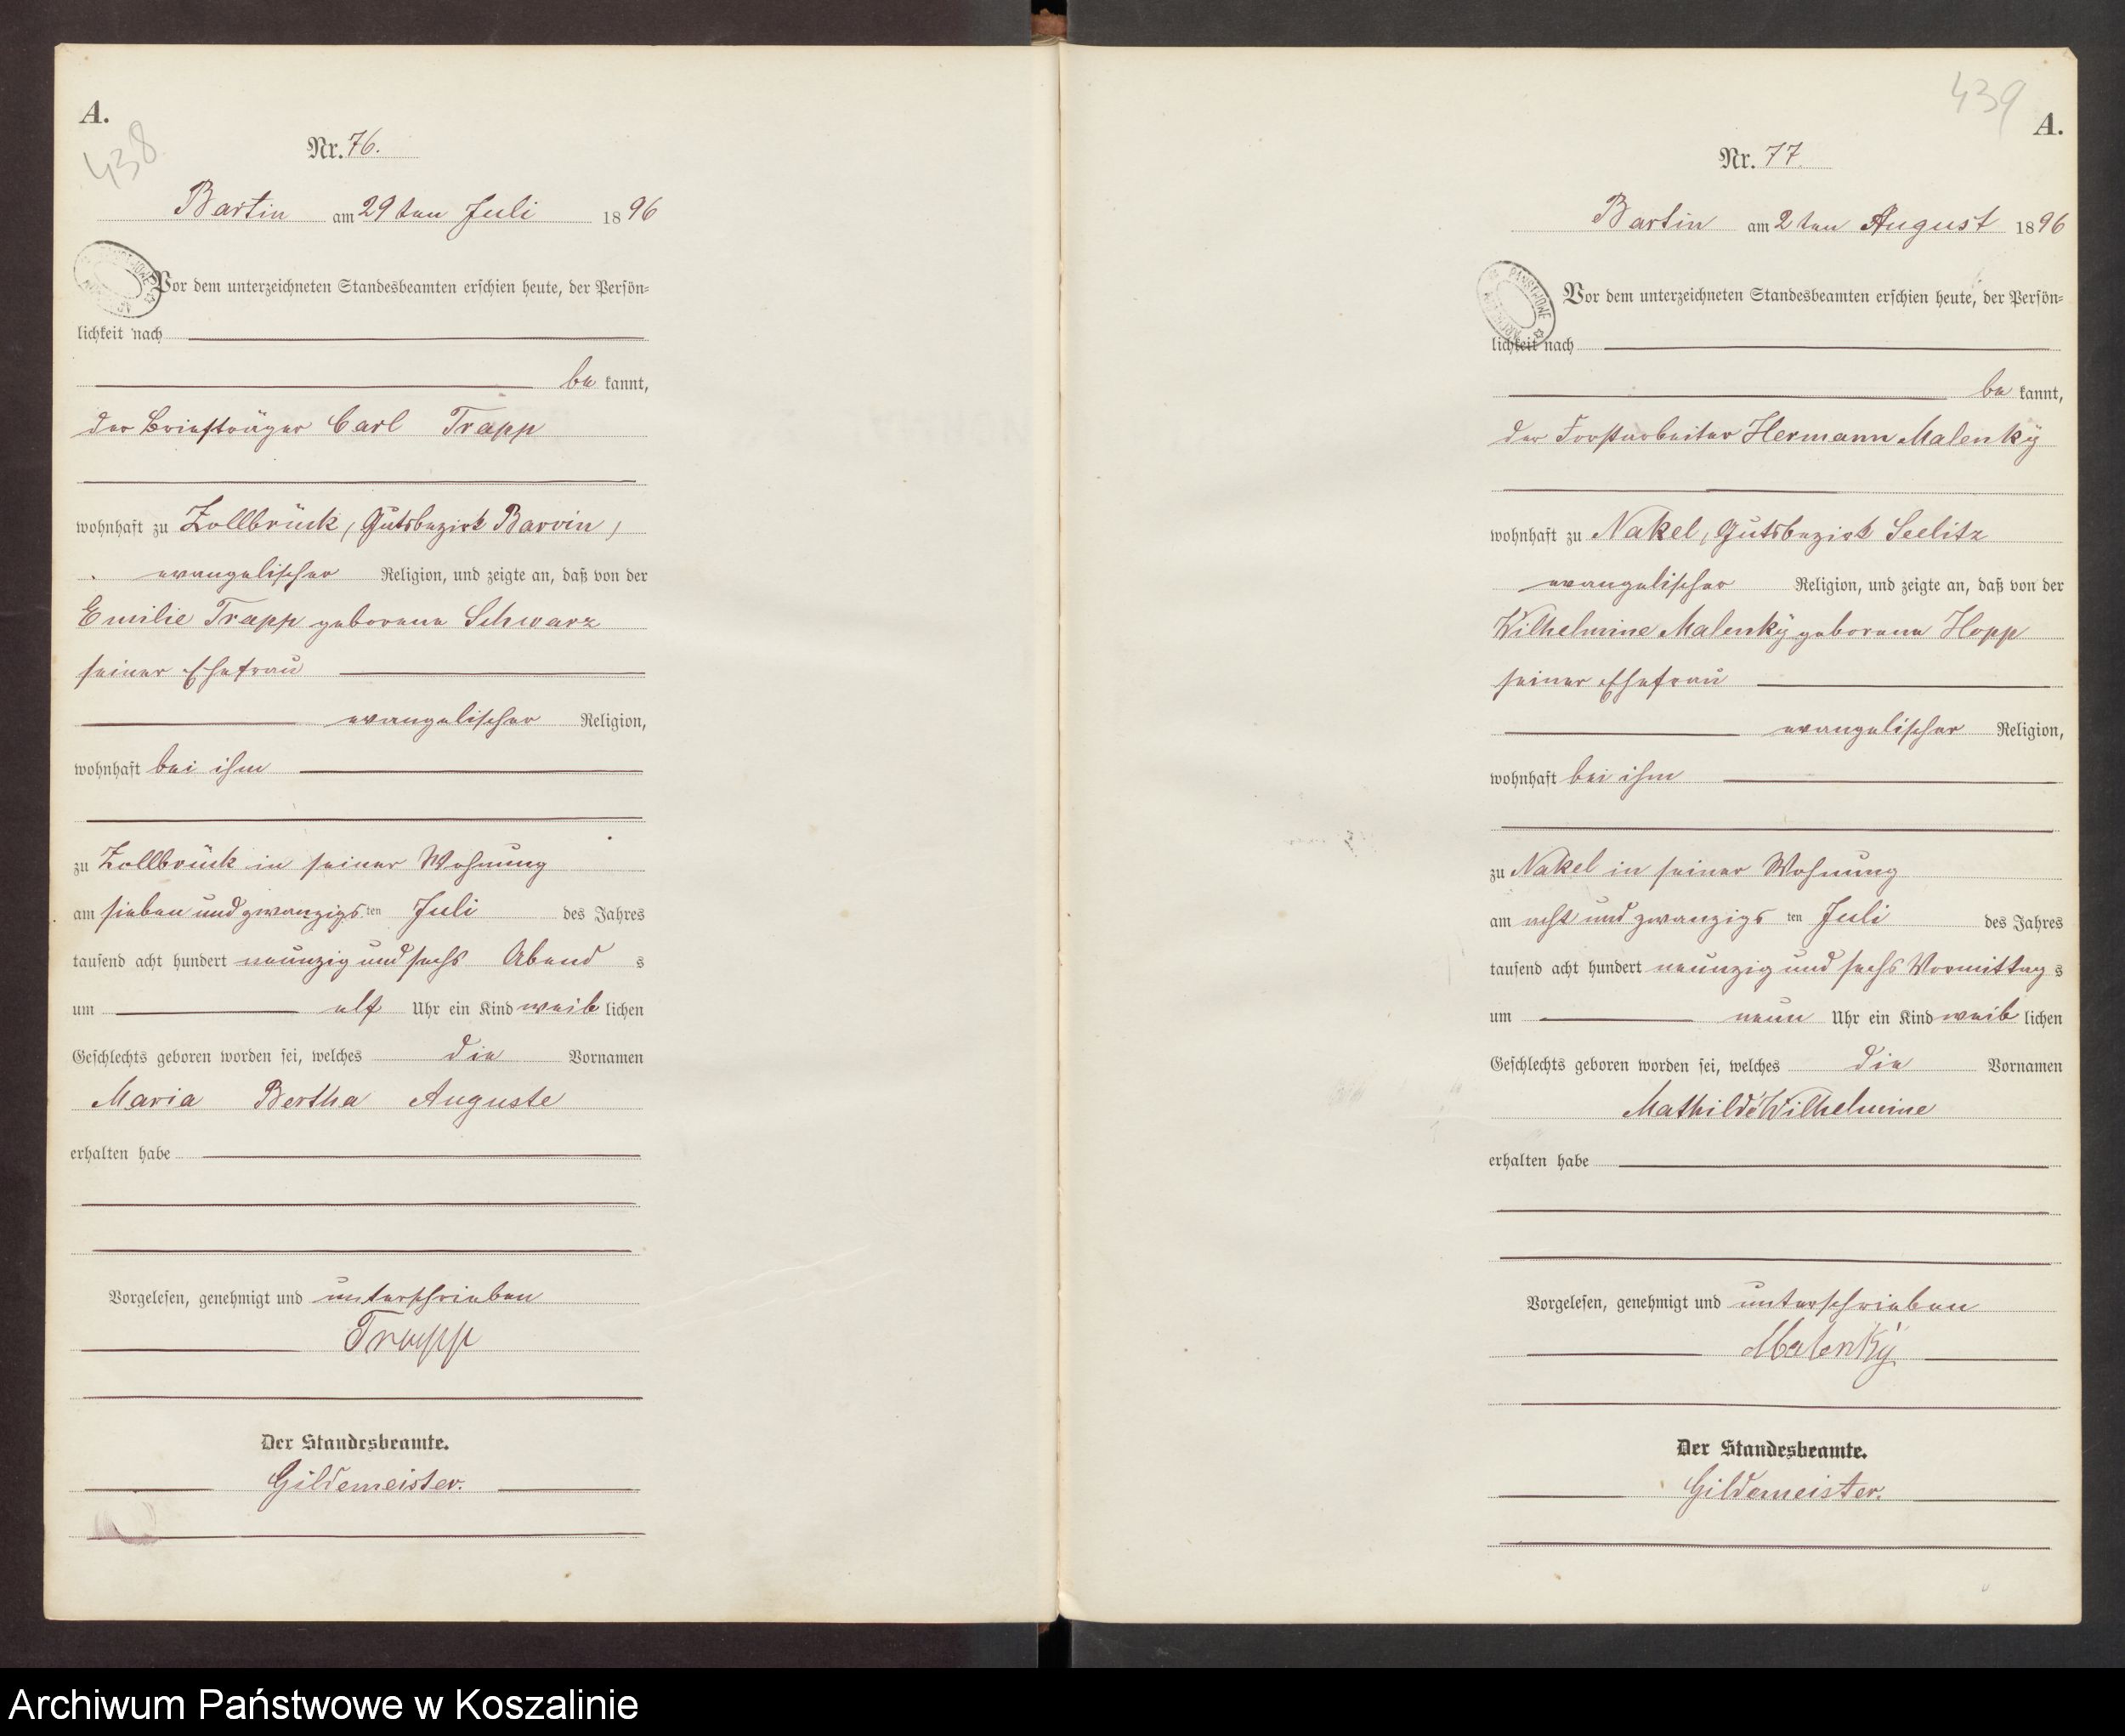 A.
438
Nr. 76.
Bartin am 29ten Juli 1896
Vor dem unterzeichneten Standesbeamten erschien heute, der Persön-
lichkeit nach
be kannt,
der Briefträger Carl Trapp
wohnhaft zu Zollbrück, Gutsbezirk Barvin,
evangelischer Religion, und zeigte an, daß von der
Emilie Trapp geborene Schwarz
seiner Ehefrau
evangelischer Religion,
wohnhaft bei ihm
zu Zollbrück in seiner Wohnung
am sieben und zwanzigs ten Juli des Jahres
tausend acht hundert neunzig und sechs Abend s
um elf Uhr ein Kind weib lichen
Geschlechts geboren worden sei, welches die Vornamen
Maria Bertha Auguste
erhalten habe
Vorgelesen, genehmigt und unterschrieben
Trapp
Der Standesbeamte.
Gildemeister.
439
A.
Nr. 77.
Bartin am 2ten August 1896
Vor dem unterzeichneten Standesbeamten erschien heute, der Persön-
lichkeit nach
be kannt,
der Forstarbeiter Hermann Malenky
wohnhaft zu Nakel, Gutsbezirk Seelitz
evangelischer Religion, und zeigte an, daß von der
Wilhelmine Malenky geborene Hopp
seiner Ehefrau
evangelischer Religion,
wohnhaft bei ihm
zu Nakel in seiner Wohnung
am acht und zwanzigs ten Juli des Jahres
tausend acht hundert neunzig und sechs Vormittag s
um neun Uhr ein Kind weib lichen
Geschlechts geboren worden sei, welches die Vornamen
Mathilde Wilhelmine
erhalten habe
Vorgelesen, genehmigt und unterschrieben
Malenky
Der Standesbeamte.
Gildemeister.
Archiwum Państwowe w Koszalinie